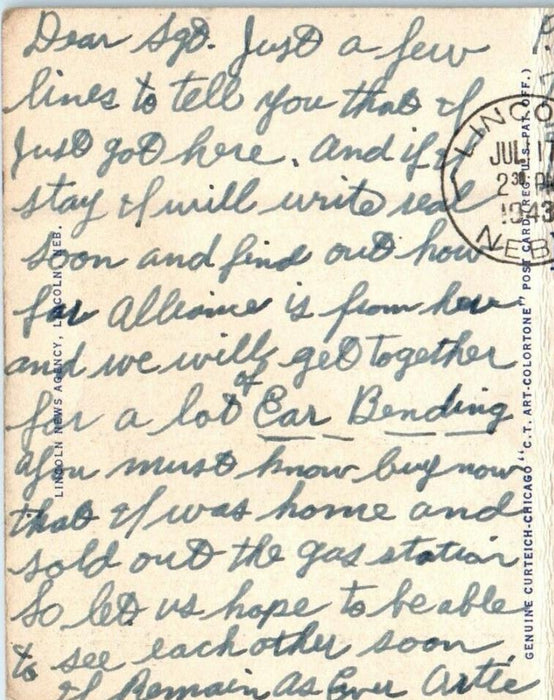 Dear Sgt. Just a few
lines to tell you that I
Just got here. And if I
stay I will write real
soon and find out how
far Alliance is from here
and we will get together
for a lot of Ear Bending
you must know buy now
that I was home and
sold out the gas station
So let us hope to be able
to see each other soon
I Remain As Ever Artie
LINCO
JUL 17
2 30 PM
1943
NEB
LINCOLN NEWS AGENCY, LINCOLN, NEB.
GENUINE CURTEICH-CHICAGO "C.T. ART-COLORTONE" POST CARD (REG. U.S. PAT. OFF.)